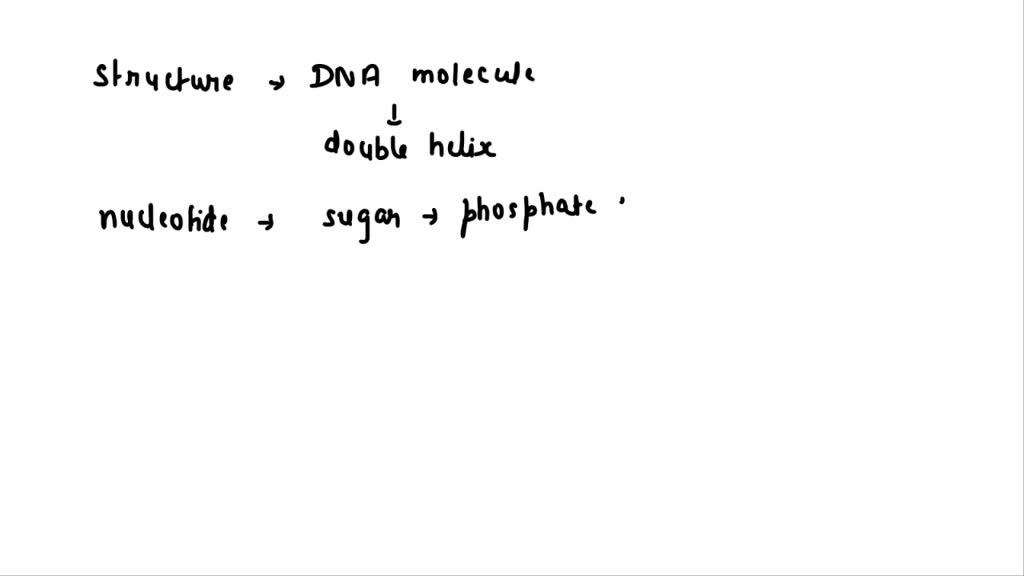 structure → DNA molecule
↓
double helix
nucleotide → sugar → phosphate